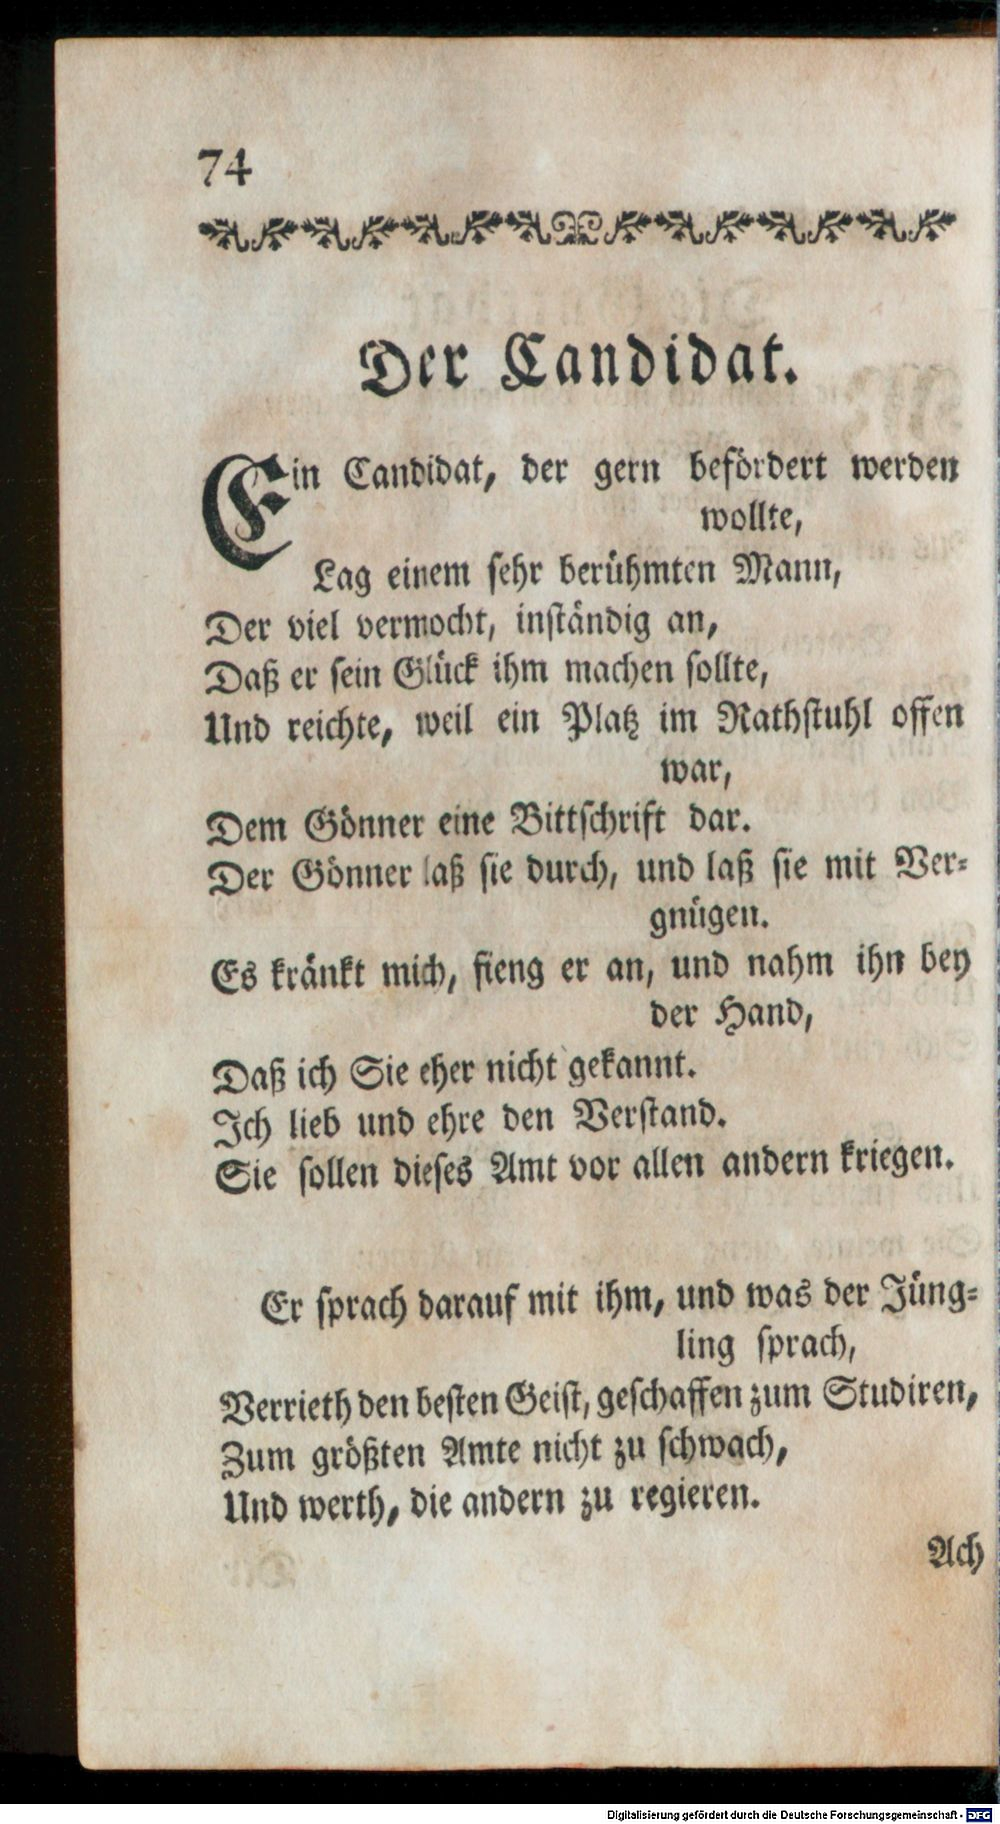 74
Der Candidat.
Ein Candidat, der gern befördert werden
wollte,
Lag einem sehr berühmten Mann,
Der viel vermocht, inständig an,
Daß er sein Glück ihm machen sollte,
Und reichte, weil ein Platz im Rathstuhl offen
war,
Dem Gönner eine Bittschrift dar.
Der Gönner laß sie durch, und laß sie mit Ver-
gnügen.
Es kränkt mich, fieng er an, und nahm ihn bey
der Hand,
Daß ich Sie eher nicht gekannt.
Ich lieb und ehre den Verstand.
Sie sollen dieses Amt vor allen andern kriegen.
Er sprach darauf mit ihm, und was der Jüng-
ling sprach,
Verrieth den besten Geist, geschaffen zum Studiren,
Zum größten Amte nicht zu schwach,
Und werth, die andern zu regieren.
Ach
Digitalisierung gefördert durch die Deutsche Forschungsgemeinschaft - DFG